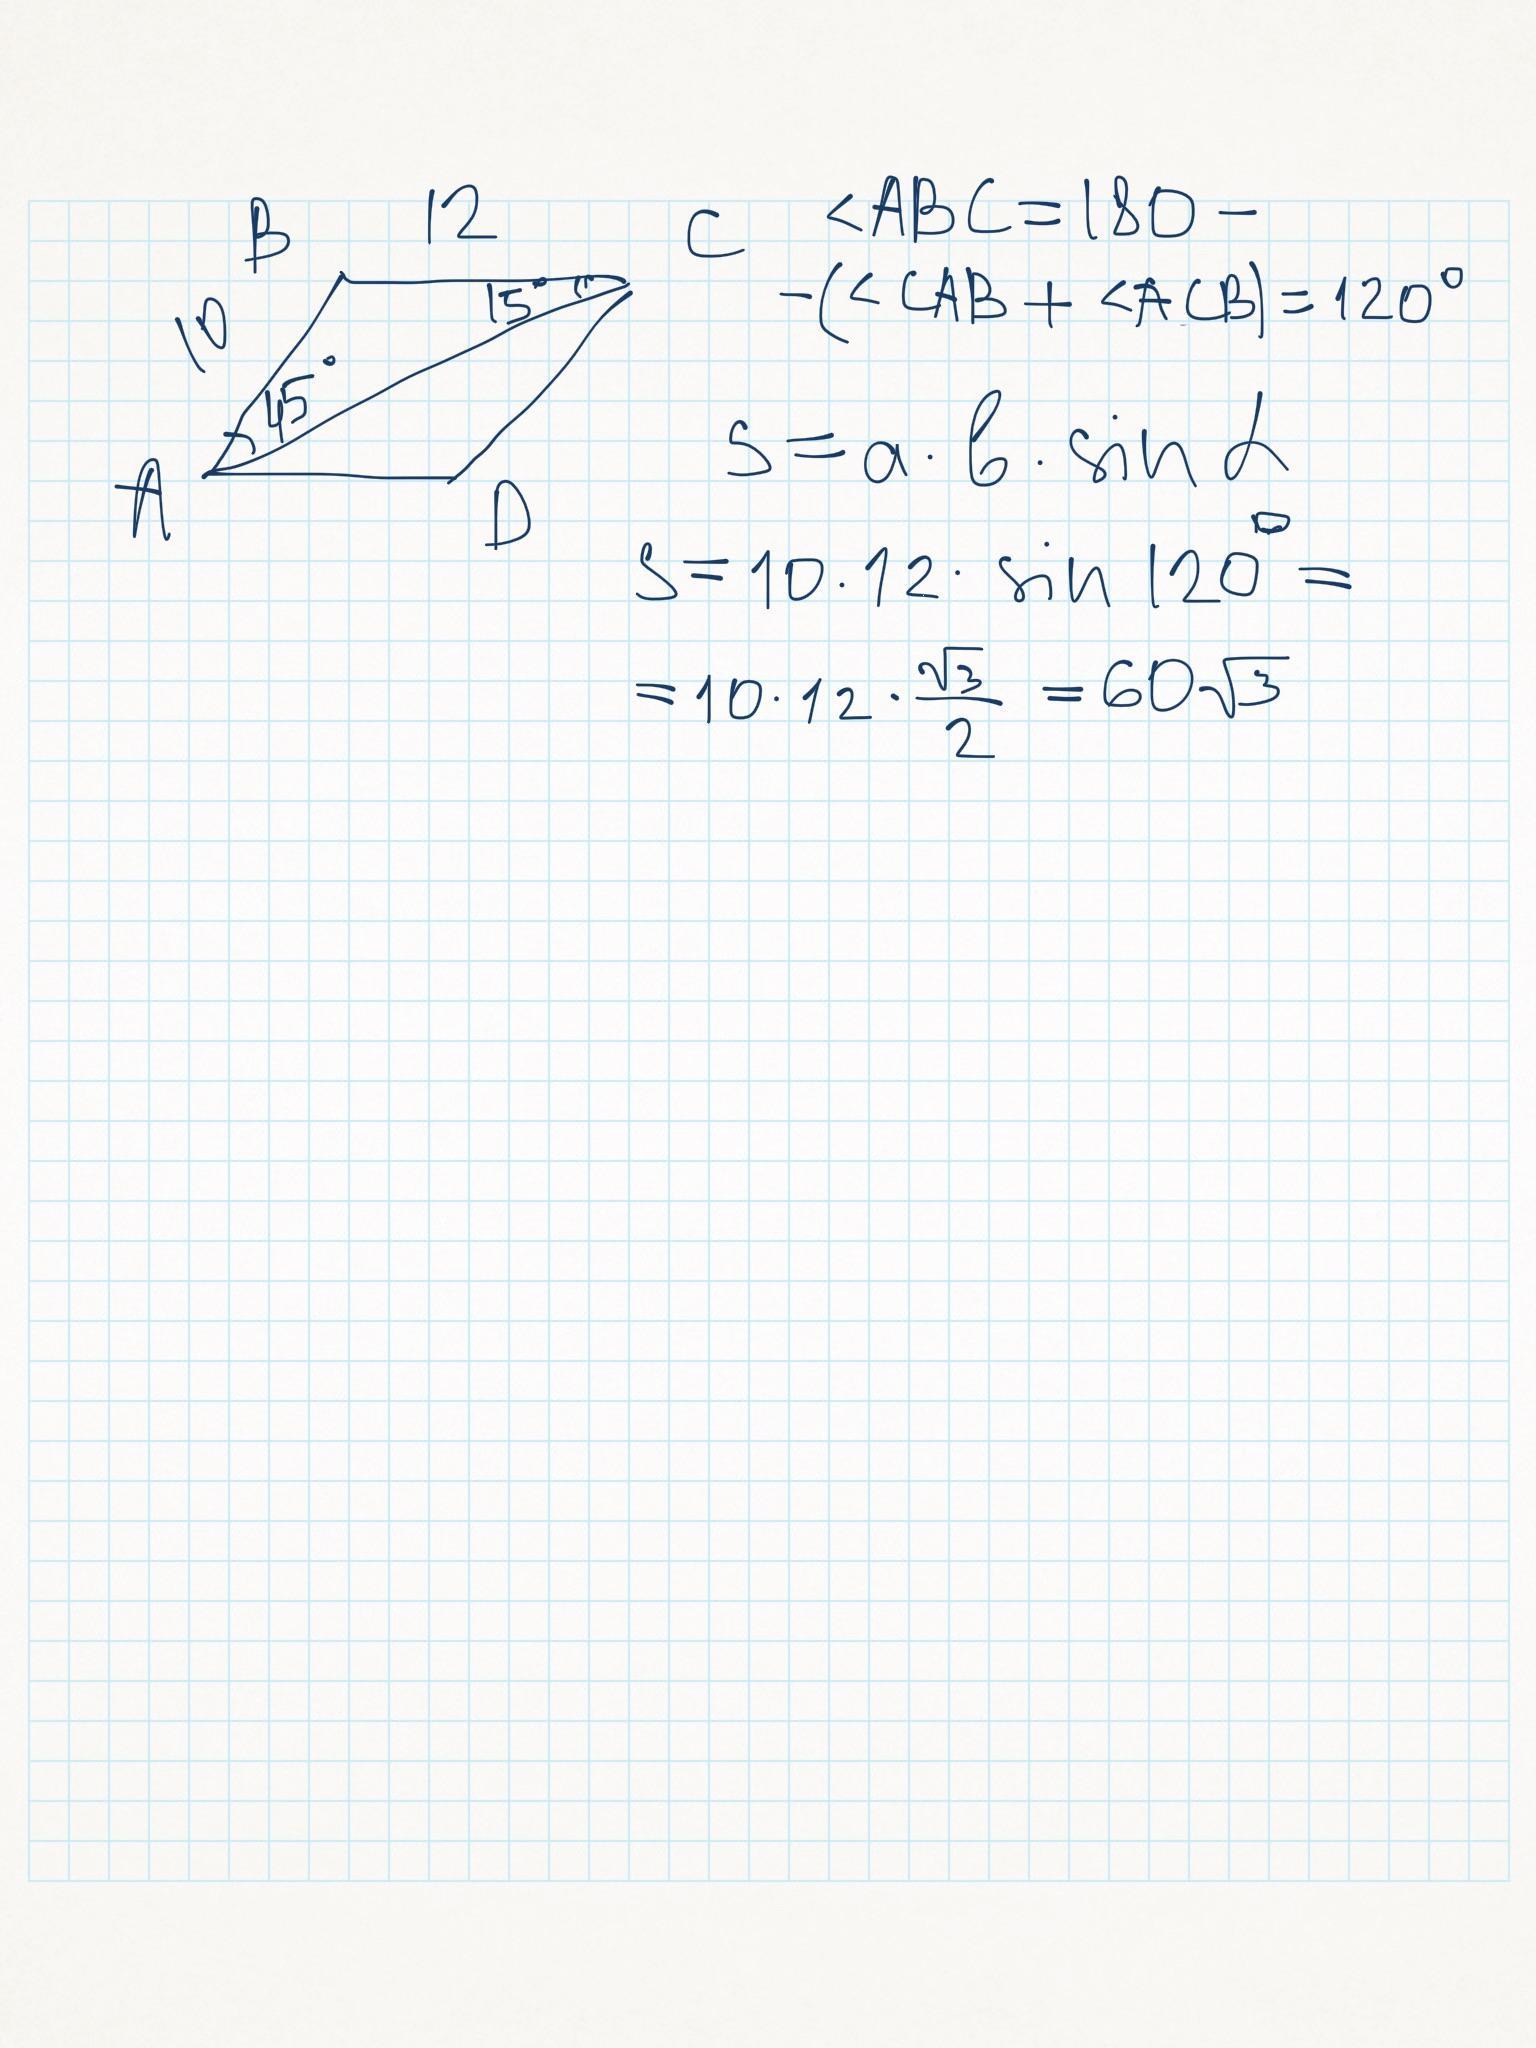 B 12 C
10
15°
45°
A
D
<ABC=180-
-(<CAB+<ACB)=120°
S=a·b·sinα
S=10·12·sin120°=
=10·12·√3/2=60√3